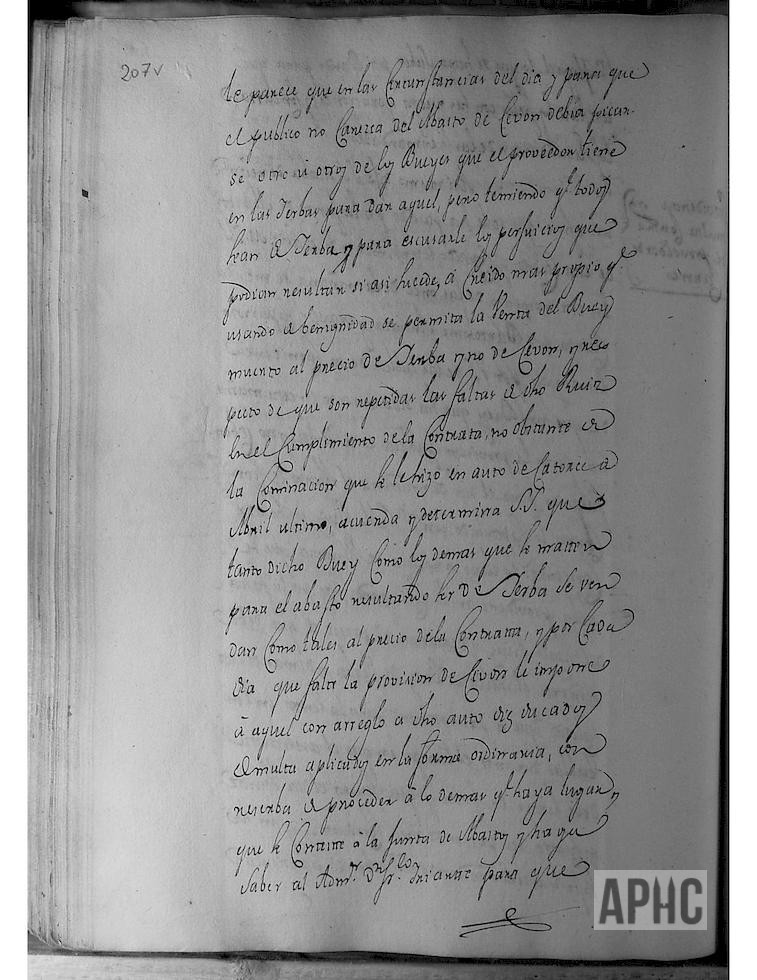 207v
le parece que en las Circunstancias del dia y para que
el publico no Caresca del Abasto de Cevon debia picar
se otro u otros de los Bueyes que el proveedor tiene
en las Ierbas para dar aquel, pero temiendo qe. todos
sean de Ierba y para escusarle los perjuicios que
podian resultar si asi sucede, á Creido mas propio qe.
usando de benignidad se permita la Venta del Buey
muerto al precio de Ierba y no de Cevon, y res
pecto de que son repetidas las faltas de dho Ruiz
en el Cumplimiento de la Contrata, no obstante de
la Cominacion que se le hizo en auto de Catorce de
Abril ultimo, acuerda y determina S.S. que
tanto dicho Buey Como los demas que se maten
para el abasto resultando ser de Ierba se ven
dan Como tales al precio de la Contrata, y por Cada
dia que falte la provision de Cevon le impone
á aquel con arreglo a dho auto diez ducados
de multa aplicados en la forma ordinaria, con
reserba de proceder á lo demas qe. haya lugar, y
que se Conteste á la Junta de Abastos y haga
Saber al Admor. Dn. Franco. Iriarte para que
APHC